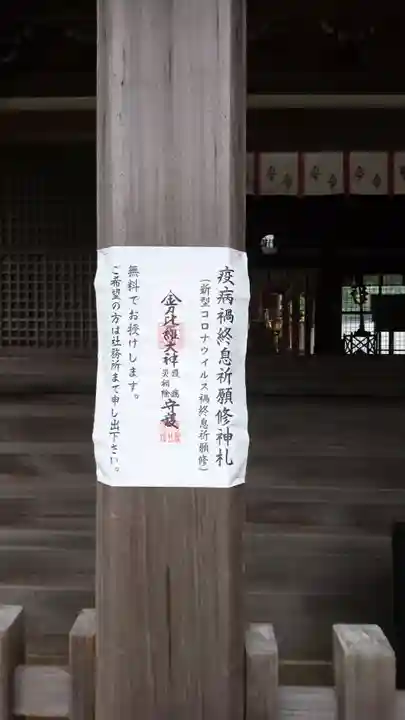 疫病禍終息祈願修神札
(新型コロナウイルス禍終息祈願修)
金刀比羅大神
守護
無料でお授けします。
ご希望の方は社務所まで申し出下さい。